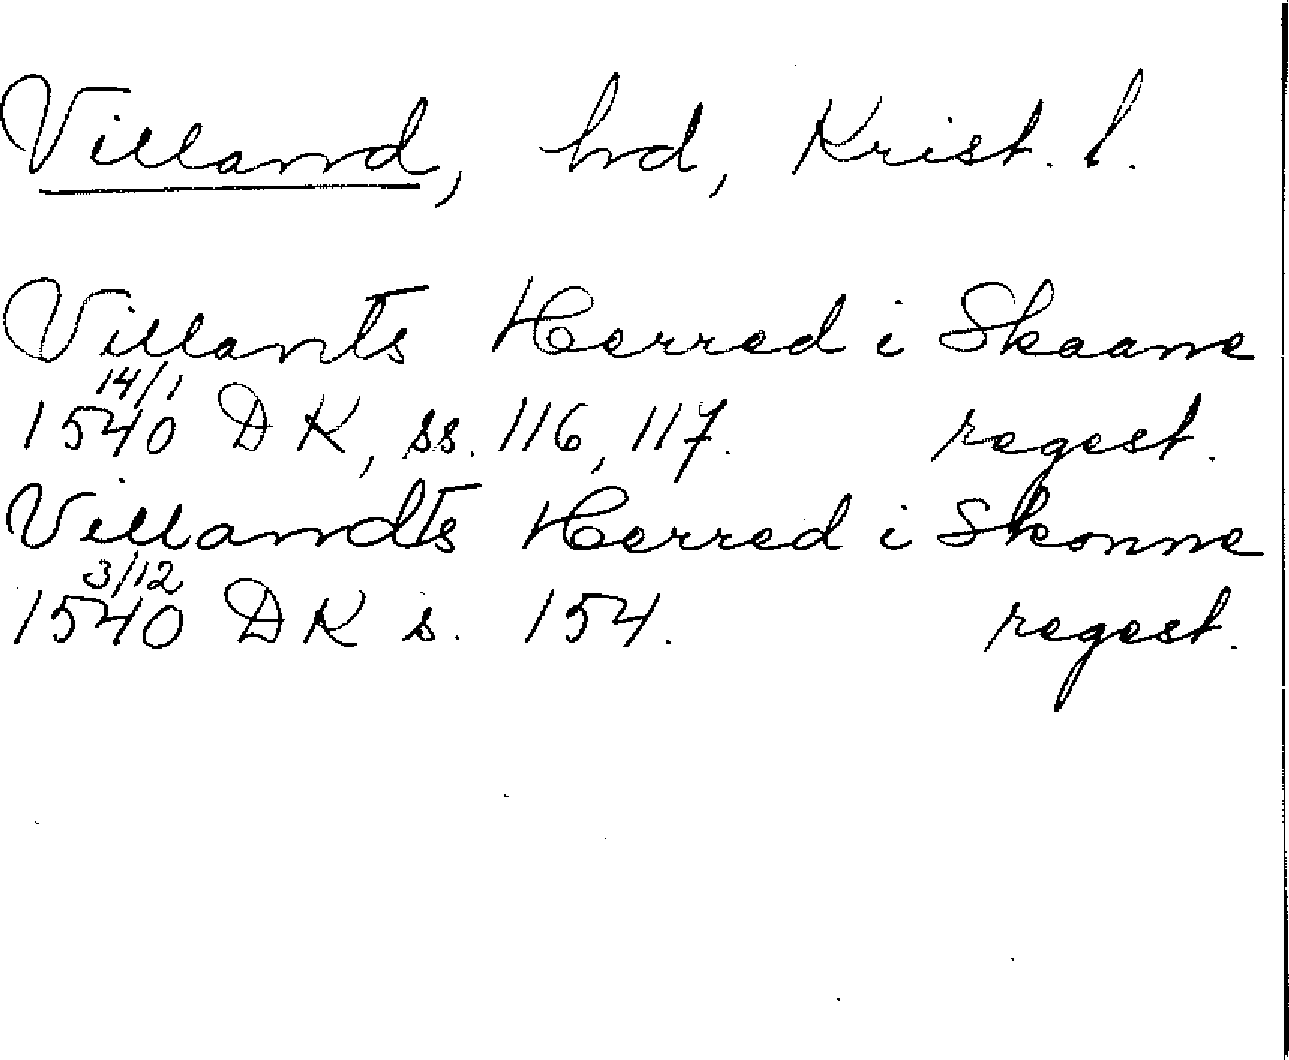 Villand, hd, Krist. l.
Villants Herred i Skaane
14/1
1540 DK, ss. 116, 117. regest.
Villandts Herred i Skonne
3/12
1540 DK s. 154. regest.